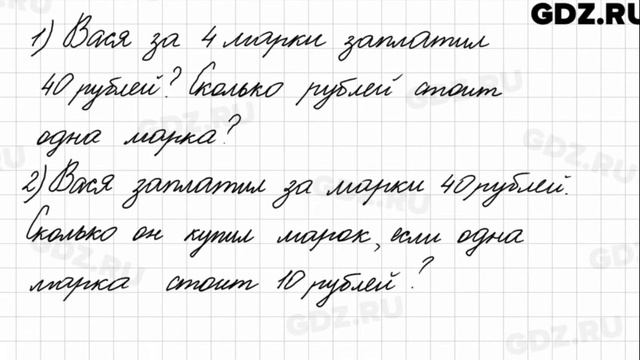 GDZ.RU
1) Вася за 4 марки заплатил
40 рублей? Сколько рублей стоит
одна марка?
2) Вася заплатил за марки 40 рублей.
Сколько он купил марок, если одна
марка стоит 10 рублей?